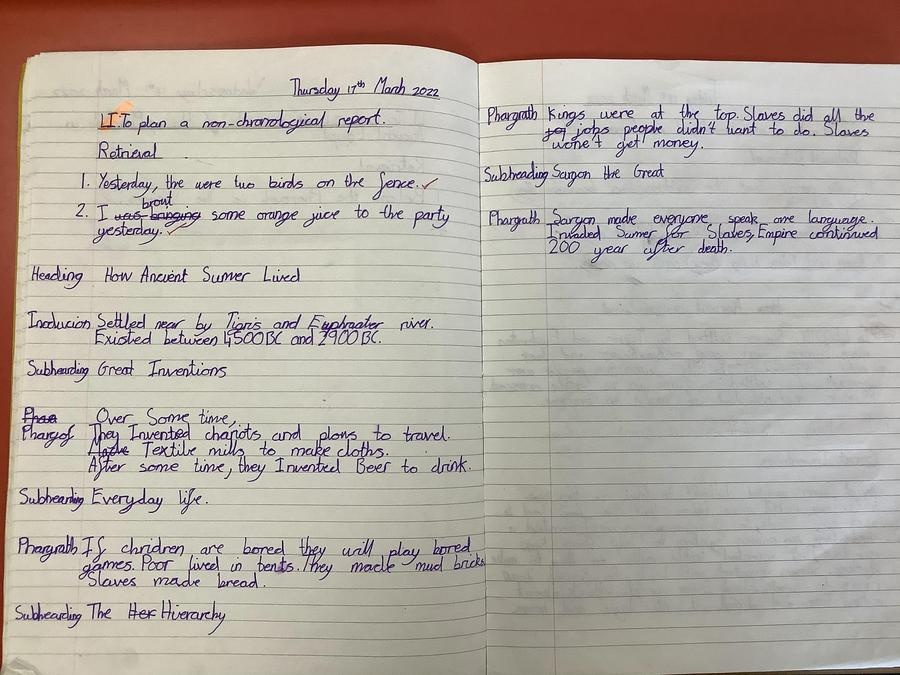 Thursday 17th March 2022
LI: To plan a non-chronological report.
Retrieval
1. Yesterday, the were two birds on the fence.
brout
2. I was bringing some orange juice to the party
yesterday.
Heading How Ancient Sumer Lived
Inoducion Settled near by Tigris and Euphrater river.
Existed between 4500BC and 2900BC.
Subhearding Great Inventions
Phaa Over Some time,
Phargof They Invented chariots and plows to travel.
Made Textile mills to make cloths.
After some time, they Invented Beer to drink.
Subhearding Everyday life.
Phargrath If chridren are bored they will play bored
games. Poor lived in tents. They made mud bricks
Slaves made bread.
Subhearding The Her Hierarchy
Phargrath Kings were at the top. Slaves did all the
jobs people didn't want to do. Slaves
wone't get money.
Subheading Sargon the Great
Phargrath Sargon made everyone speak one language.
Invaded Sumer for Slaves, Empire continued
200 year after death.